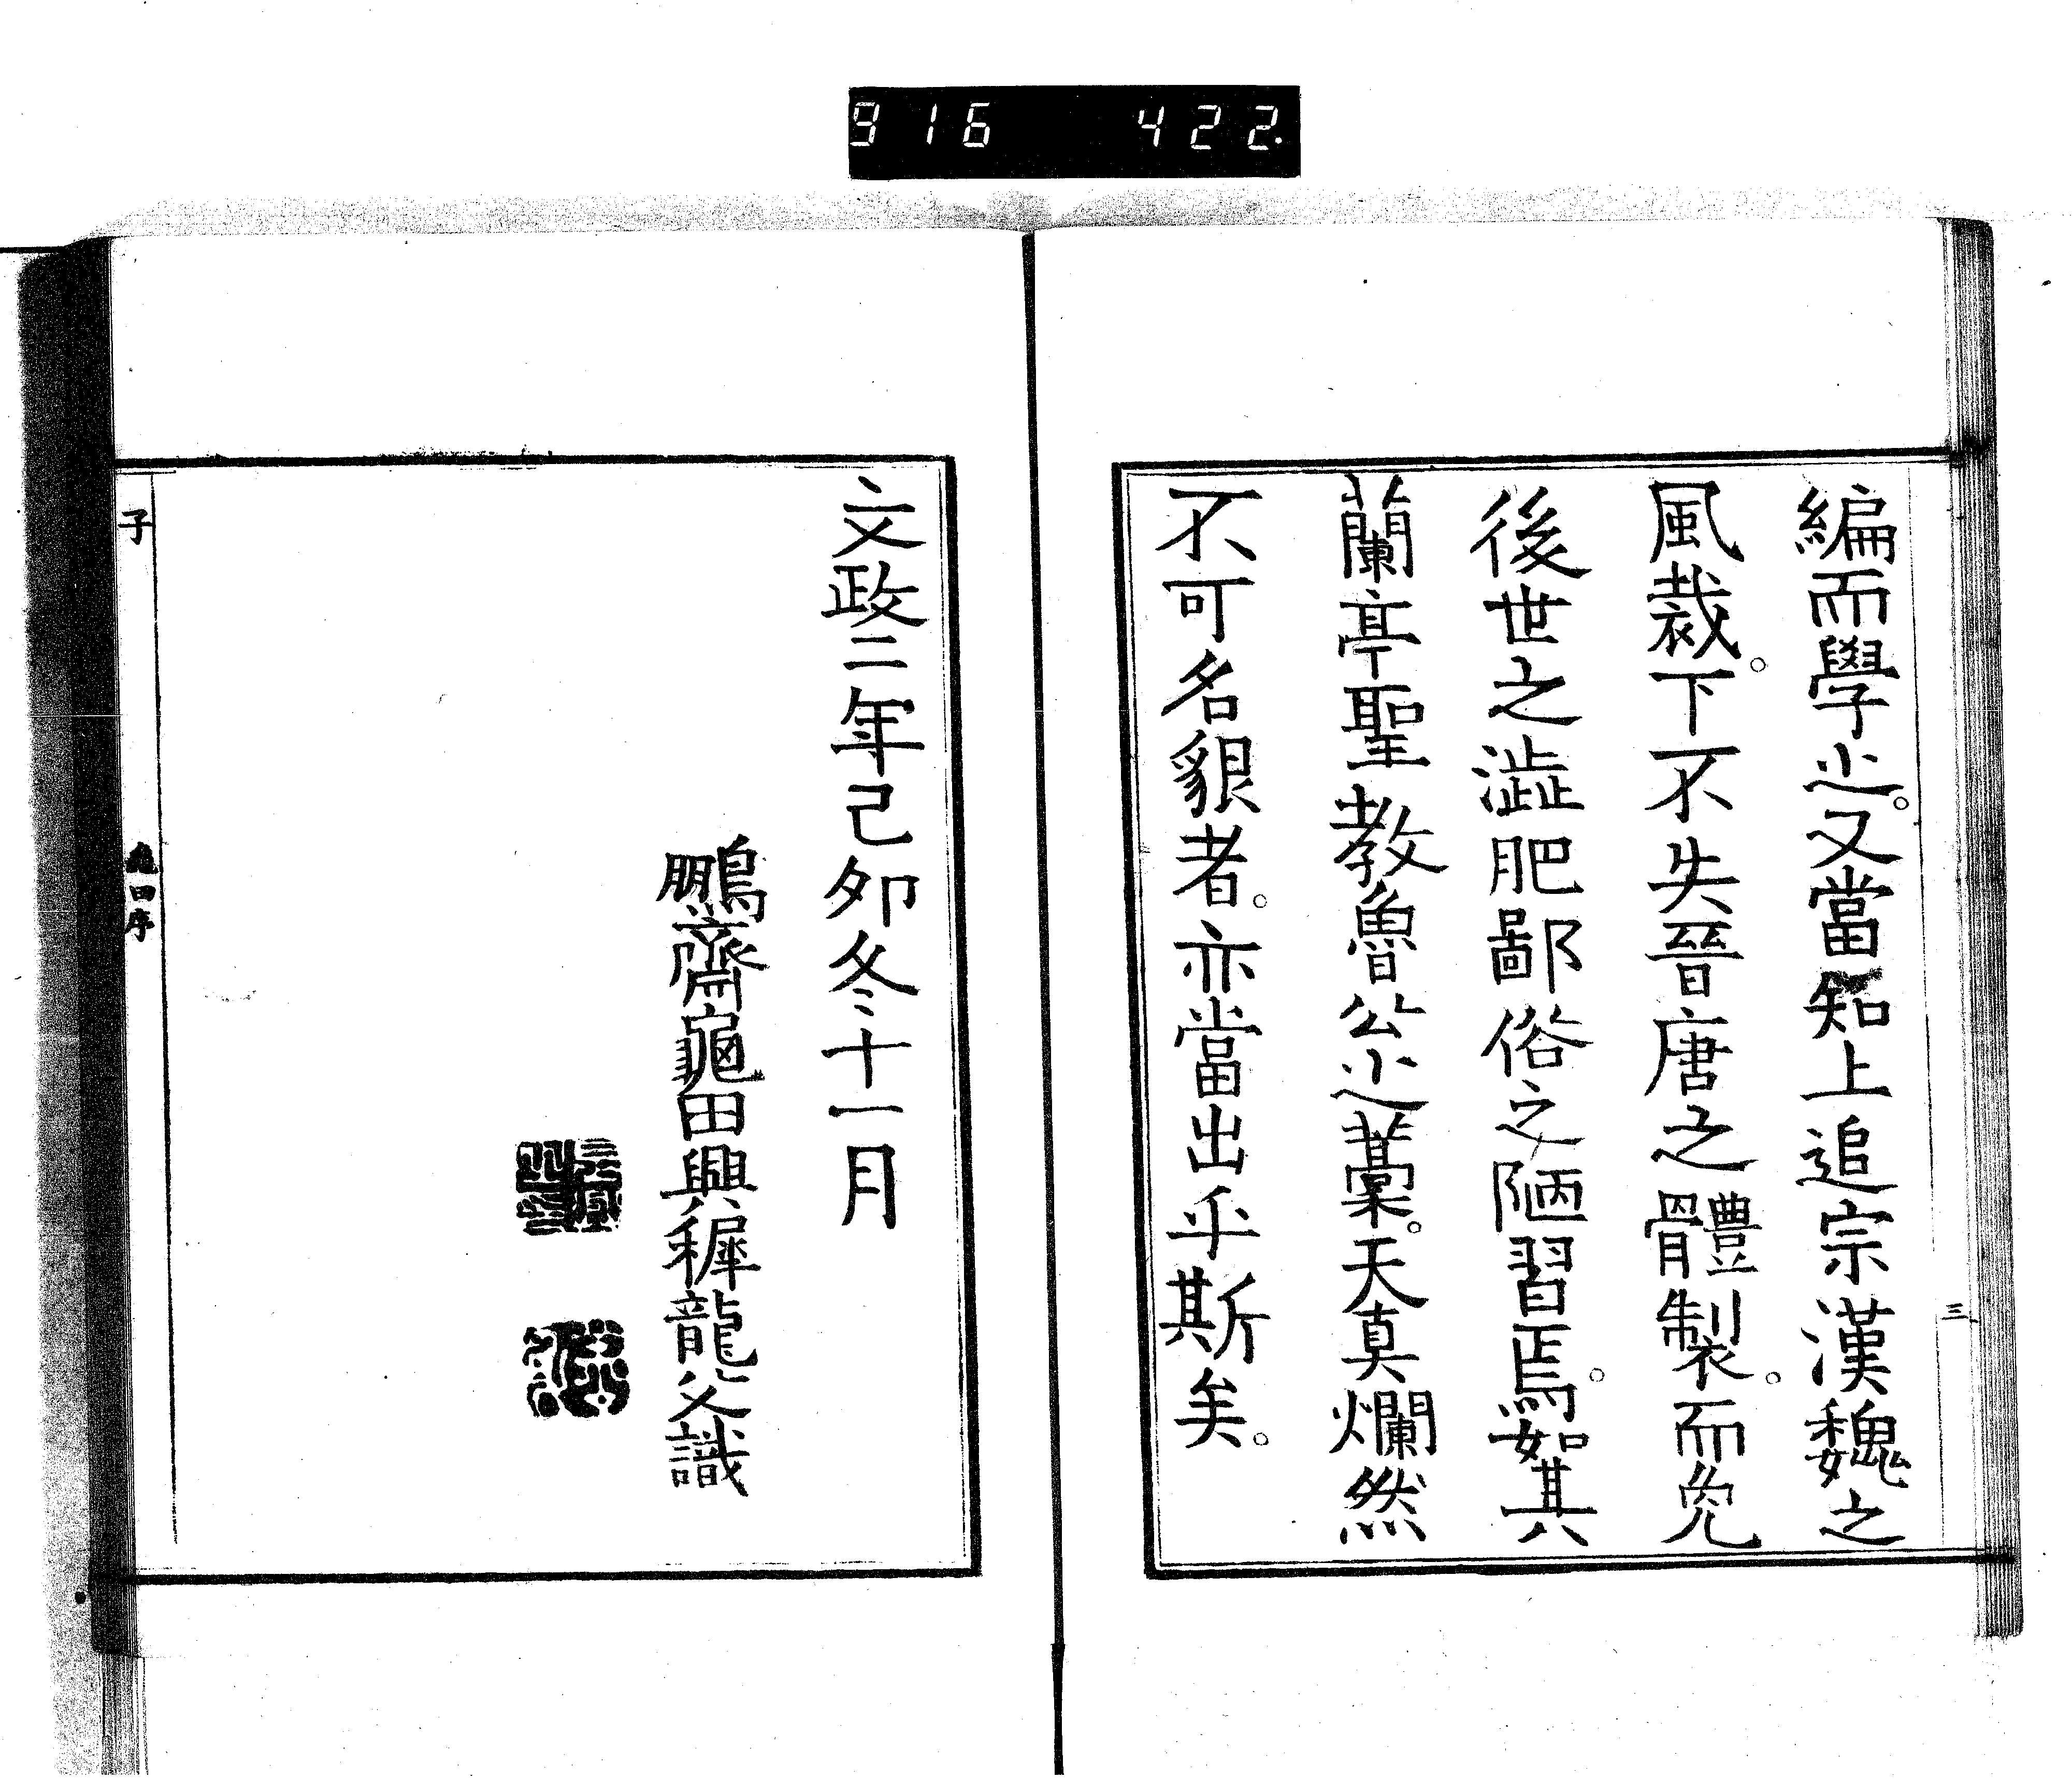 916 422.
三
編而學之。又當知上追宗漢魏之
風裁。下不失晉唐之體製。而免
後世之澁肥鄙俗之陋習焉。如其
蘭亭聖教魯公之藁。天真爛然
不可名貌者。亦當出乎斯矣。
文政二年己卯冬十一月
鵬齋龜田興穉龍父識
子
龜田序